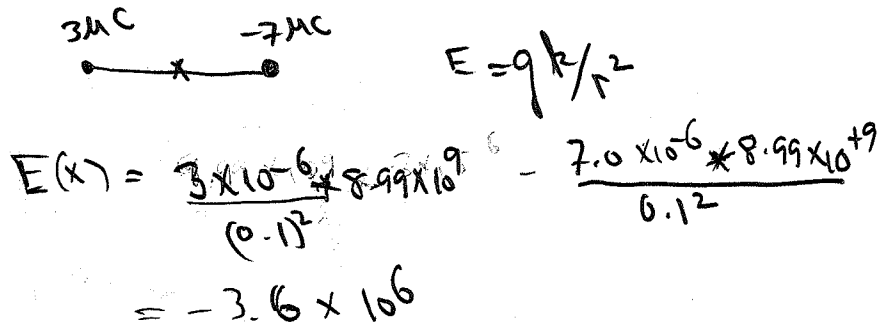 3μC -7μC
E = qk/r²
E(x) = 3×10⁻⁶*8.99×10⁹/(0.1)² - 7.0×10⁻⁶*8.99×10⁺⁹/0.1²
= -3.6 × 10⁶